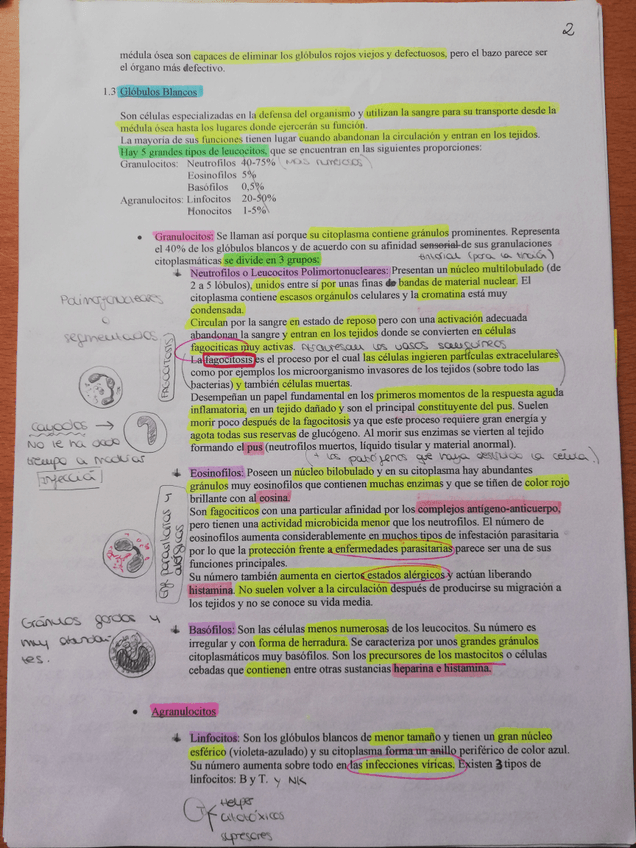 2
médula ósea son capaces de eliminar los glóbulos rojos viejos y defectuosos, pero el bazo parece ser
el órgano más defectivo.
1.3 Glóbulos Blancos
Son células especializadas en la defensa del organismo y utilizan la sangre para su transporte desde la
médula ósea hasta los lugares donde ejercerán su función.
La mayoría de sus funciones tienen lugar cuando abandonan la circulación y entran en los tejidos.
Hay 5 grandes tipos de leucocitos, que se encuentran en las siguientes proporciones:
Granulocitos: Neutrofilos 40-75% (más numerosos)
Eosinofilos 5%
Basófilos 0,5%
Agranulocitos: Linfocitos 20-50%
Monocitos 1-5%
• Granulocitos: Se llaman así porque su citoplasma contiene gránulos prominentes. Representa
el 40% de los glóbulos blancos y de acuerdo con su afinidad sensorial de sus granulaciones
citoplasmáticas se divide en 3 grupos:
tintorial (para la tinción)
Neutrofilos o Leucocitos Polimortonucleares: Presentan un núcleo multilobulado (de
2 a 5 lóbulos), unidos entre sí por unas finas de bandas de material nuclear. El
citoplasma contiene escasos orgánulos celulares y la cromatina está muy
condensada.
Circulan por la sangre en estado de reposo pero con una activación adecuada
abandonan la sangre y entran en los tejidos donde se convierten en células
fagocíticas muy activas. Atraviesan los vasos sanguíneos
La fagocitosis es el proceso por el cual las células ingieren partículas extracelulares
como por ejemplos los microorganismo invasores de los tejidos (sobre todo las
bacterias) y también células muertas.
Desempeñan un papel fundamental en los primeros momentos de la respuesta aguda
inflamatoria, en un tejido dañado y son el principal constituyente del pus. Suelen
morir poco después de la fagocitosis ya que este proceso requiere gran energía y
agota todas sus reservas de glucógeno. Al morir sus enzimas se vierten al tejido
formando el pus (neutrofilos muertos, líquido tisular y material anormal).
+ los patógenos que haya destruido la célula)
Polimorfonucleares
o
segmentados
FAGOCITOSIS
cayados →
No le ha dado
tiempo a madurar
infección
Eosinofilos: Poseen un núcleo bilobulado y en su citoplasma hay abundantes
gránulos muy eosinofilos que contienen muchas enzimas y que se tiñen de color rojo
brillante con al eosina.
Son fagociticos con una particular afinidad por los complejos antígeno-anticuerpo,
pero tienen una actividad microbicida menor que los neutrofilos. El número de
eosinofilos aumenta considerablemente en muchos tipos de infestación parasitaria
por lo que la protección frente a enfermedades parasitarias parece ser una de sus
funciones principales.
Su número también aumenta en ciertos estados alérgicos y actúan liberando
histamina. No suelen volver a la circulación después de producirse su migración a
los tejidos y no se conoce su vida media.
Enf. parasitarias y
alérgicas
Basófilos: Son las células menos numerosas de los leucocitos. Su número es
irregular y con forma de herradura. Se caracteriza por unos grandes gránulos
citoplasmáticos muy basófilos. Son los precursores de los mastocitos o células
cebadas que contienen entre otras sustancias heparina e histamina.
Gránulos gordos y
muy abundan-
tes.
• Agranulocitos
Linfocitos: Son los glóbulos blancos de menor tamaño y tienen un gran núcleo
esférico (violeta-azulado) y su citoplasma forma un anillo periférico de color azul.
Su número aumenta sobre todo en las infecciones víricas. Existen 3 tipos de
linfocitos: B y T. y NK
Helper
citotóxicos
supresores